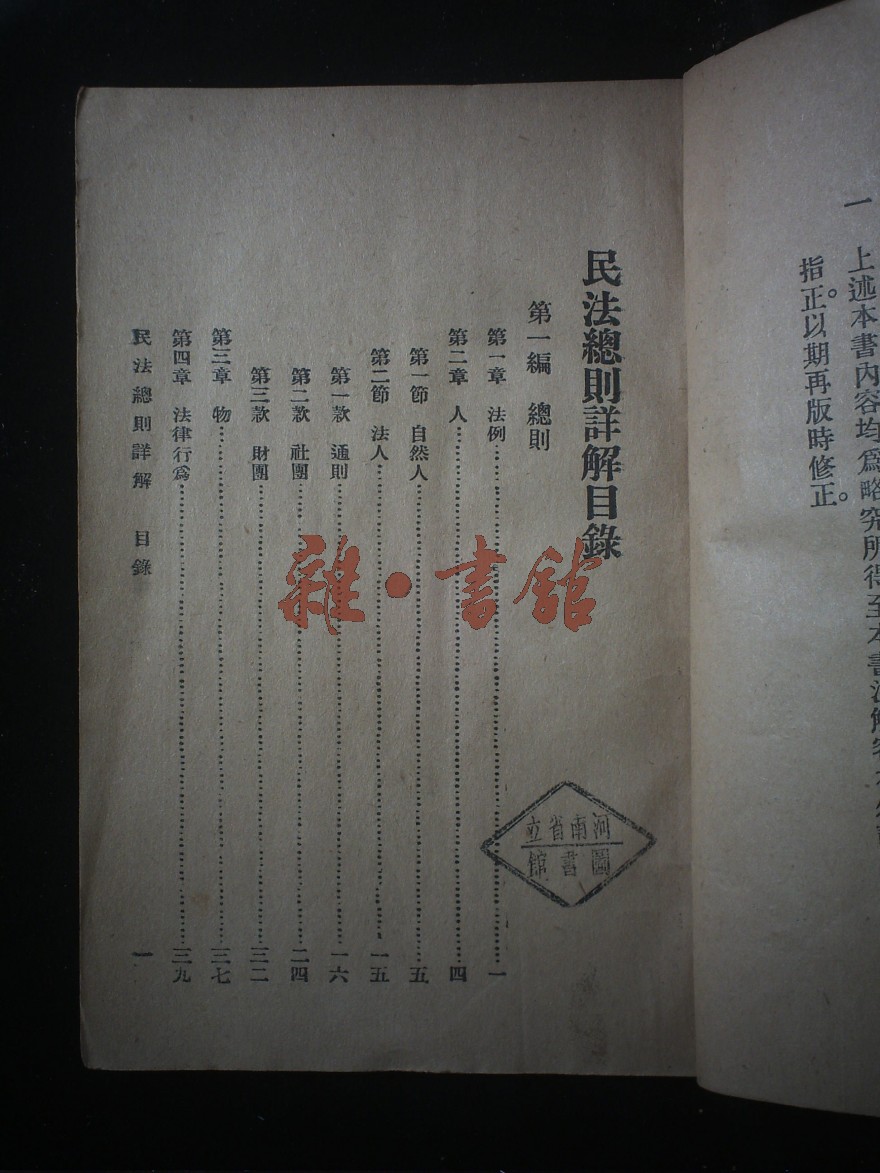 一　上述本書內容均爲略究所得至本書
指正。以期再版時修正。
民法總則詳解目錄
第一編　總則
第一章　法例……一
第二章　人……四
第一節　自然人……五
第二節　法人……一五
第一款　通則……一六
第二款　社團……二四
第三款　財團……三二
第三章　物……三七
第四章　法律行爲……三九
民法總則詳解　目錄　一
雜·書館
河南省立
圖書館